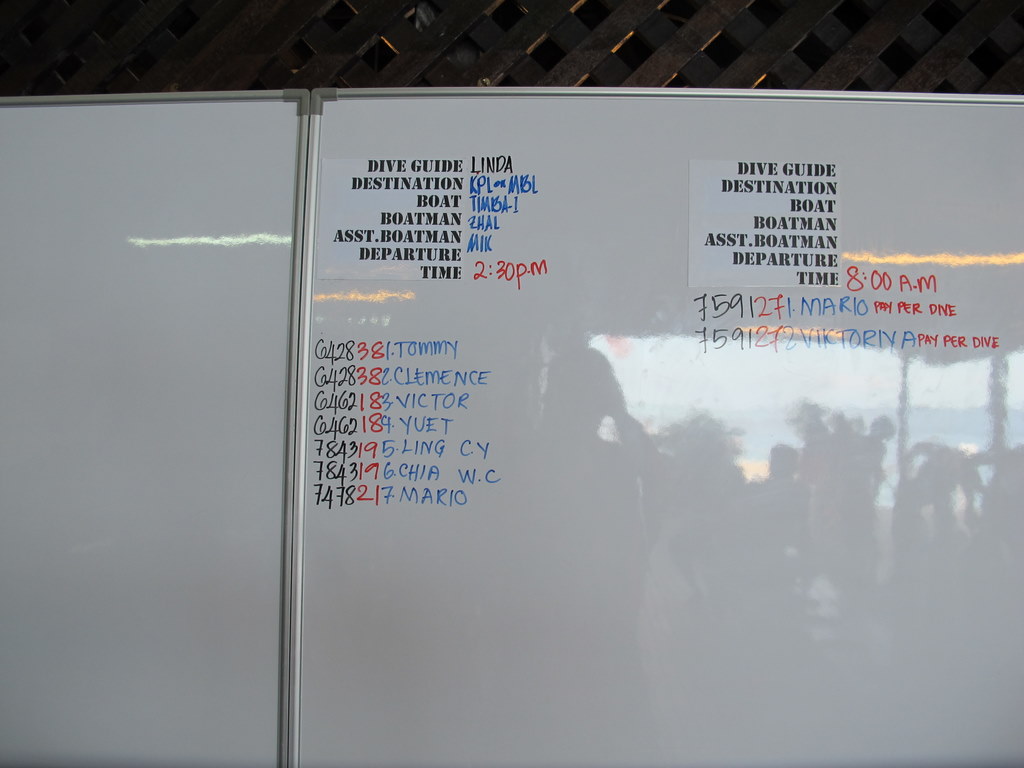 DIVE GUIDE LINDA
DESTINATION KPL or MBL
BOAT TIMBA-I
BOATMAN ZHAL
ASST.BOATMAN MIK
DEPARTURE
TIME 2:30P.M
6428 38 1.TOMMY
6428 38 2.CLEMENCE
6462 18 3.VICTOR
6462 18 4.YUET
7843 19 5.LING CY
7843 19 6.CHIA W.C
7478 21 7.MARIO
DIVE GUIDE
DESTINATION
BOAT
BOATMAN
ASST.BOATMAN
DEPARTURE
TIME 8:00 A.M
7591 27 1.MARIO PAY PER DIVE
7591 27 2.VIKTORIYA PAY PER DIVE